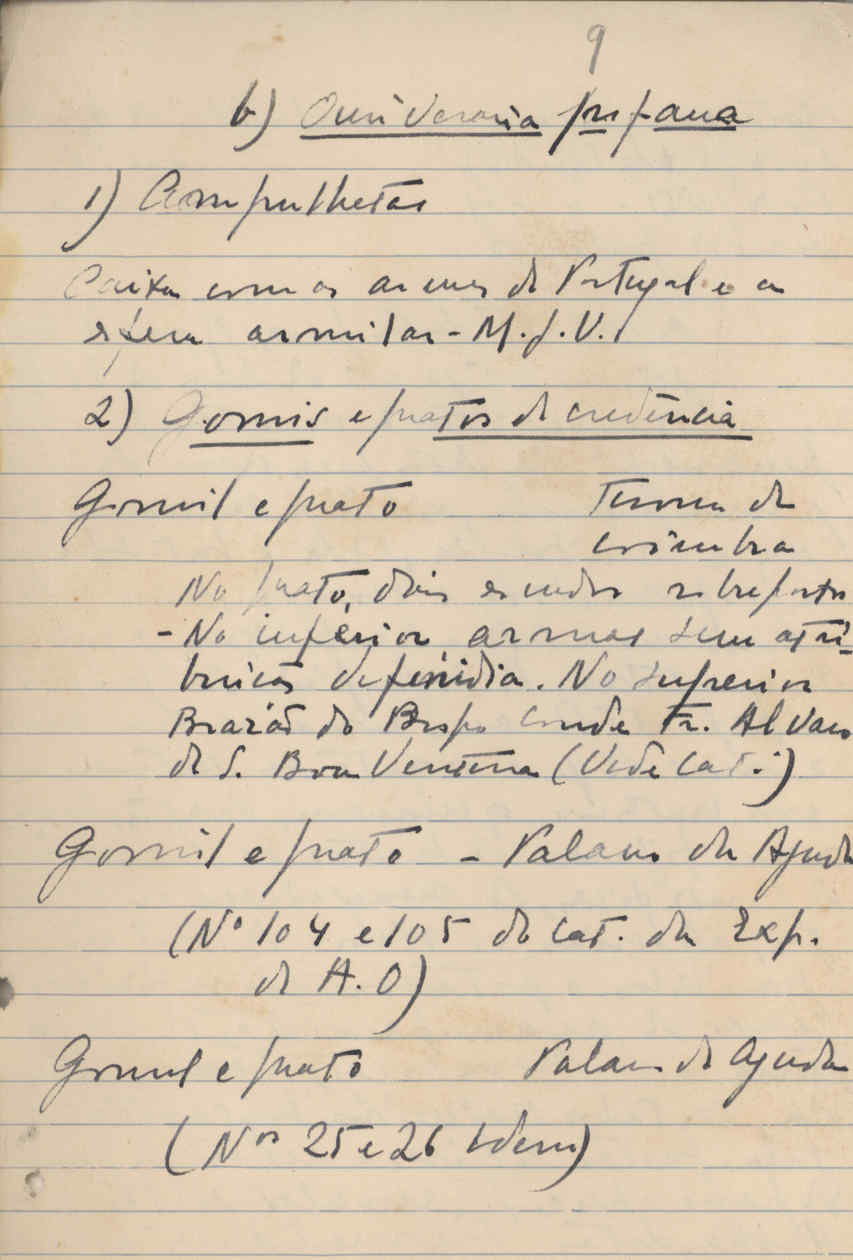 9
b) Ourivesaria profana
1) Ampulhetas
Caixa com as armas de Portugal e a
esfera armilar - M. J. V.
2) Gomis e pratos de credência
Gomil e prato Tesouro de
Coimbra
No prato, dois escudos sobrepostos
- No inferior, armas sem atri-
buição definida. No superior
Brazão do Bispo Conde Fr. Alvaro
de S. Boa Ventura (Vide Cat.)
Gomil e prato - Palacio da Ajuda
(Nº 104 e 105 do Cat. da Exp.
de A. O)
Gomil e prato Palacio da Ajuda
(Nos 25 e 26 idem)